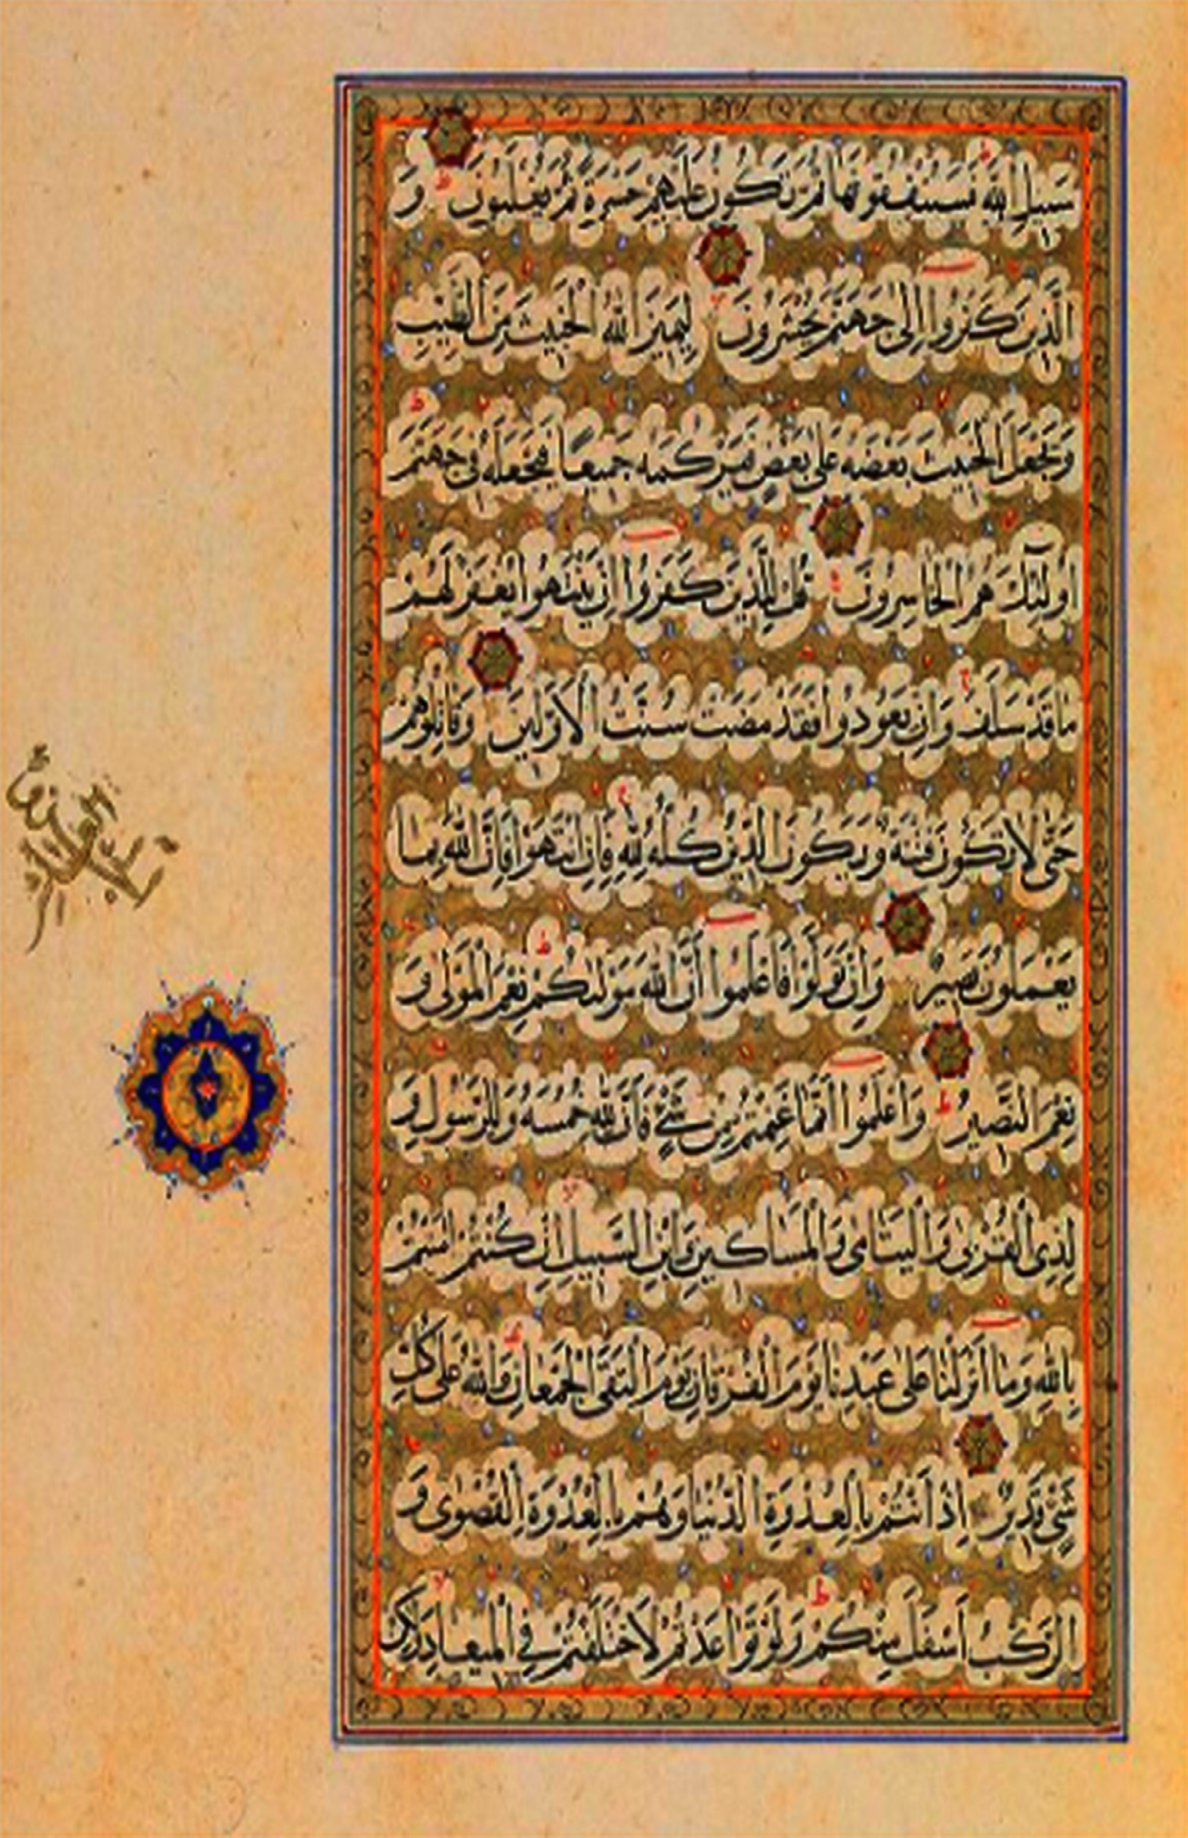 سَبيلِ اللّٰهِ فَسَيُنفِقُونَهَا ثُمَّ تَكُونُ عَلَيْهِمْ حَسْرَةً ثُمَّ يُغْلَبُونَ ط وَ
الَّذِينَ كَفَرُوا إِلىٰ جَهَنَّمَ يُحْشَرُونَ لا لِيَمِيزَ اللّٰهُ الْخَبِيثَ مِنَ الطَّيِّبِ
وَيَجْعَلَ الْخَبِيثَ بَعْضَهُ عَلىٰ بَعْضٍ فَيَرْكُمَهُ جَمِيعًا فَيَجْعَلَهُ فِى جَهَنَّمَ ط
اُولٰئِكَ هُمُ الْخَاسِرُونَ قُلْ لِلَّذِينَ كَفَرُوا اِنْ يَنْتَهُوا يُغْفَرْ لَهُمْ
مَا قَدْ سَلَفَ ج وَاِنْ يَعُودُوا فَقَدْ مَضَتْ سُنَّتُ الْاَوَّلِينَ وَقَاتِلُوهُمْ
حَتّٰى لَا تَكُونَ فِتْنَةٌ وَيَكُونَ الدِّينُ كُلُّهُ لِلّٰهِ ج فَاِنِ انْتَهَوْا فَاِنَّ اللّٰهَ بِمَا
يَعْمَلُونَ بَصِيرٌ وَاِنْ تَوَلَّوْا فَاعْلَمُوا اَنَّ اللّٰهَ مَوْلٰيكُمْ ط نِعْمَ الْمَوْلىٰ وَ
نِعْمَ النَّصِيرُ ط وَاعْلَمُوا اَنَّمَا غَنِمْتُمْ مِنْ شَىْءٍ فَاَنَّ لِلّٰهِ خُمُسَهُ وَلِلرَّسُولِ وَ
لِذِى الْقُرْبىٰ وَالْيَتَامىٰ وَالْمَسَاكِينِ وَابْنِ السَّبِيلِ لا اِنْ كُنْتُمْ اٰمَنْتُمْ
بِاللّٰهِ وَمَا اَنْزَلْنَا عَلىٰ عَبْدِنَا يَوْمَ الْفُرْقَانِ يَوْمَ الْتَقَى الْجَمْعَانِ ط وَاللّٰهُ عَلىٰ كُلِّ
شَىْءٍ قَدِيرٌ اِذْ اَنْتُمْ بِالْعُدْوَةِ الدُّنْيَا وَهُمْ بِالْعُدْوَةِ الْقُصْوىٰ وَ
الرَّكْبُ اَسْفَلَ مِنْكُمْ ط وَلَوْ تَوَاعَدْتُمْ لَاخْتَلَفْتُمْ فِى الْمِيعَادِ لا وَلٰكِنْ